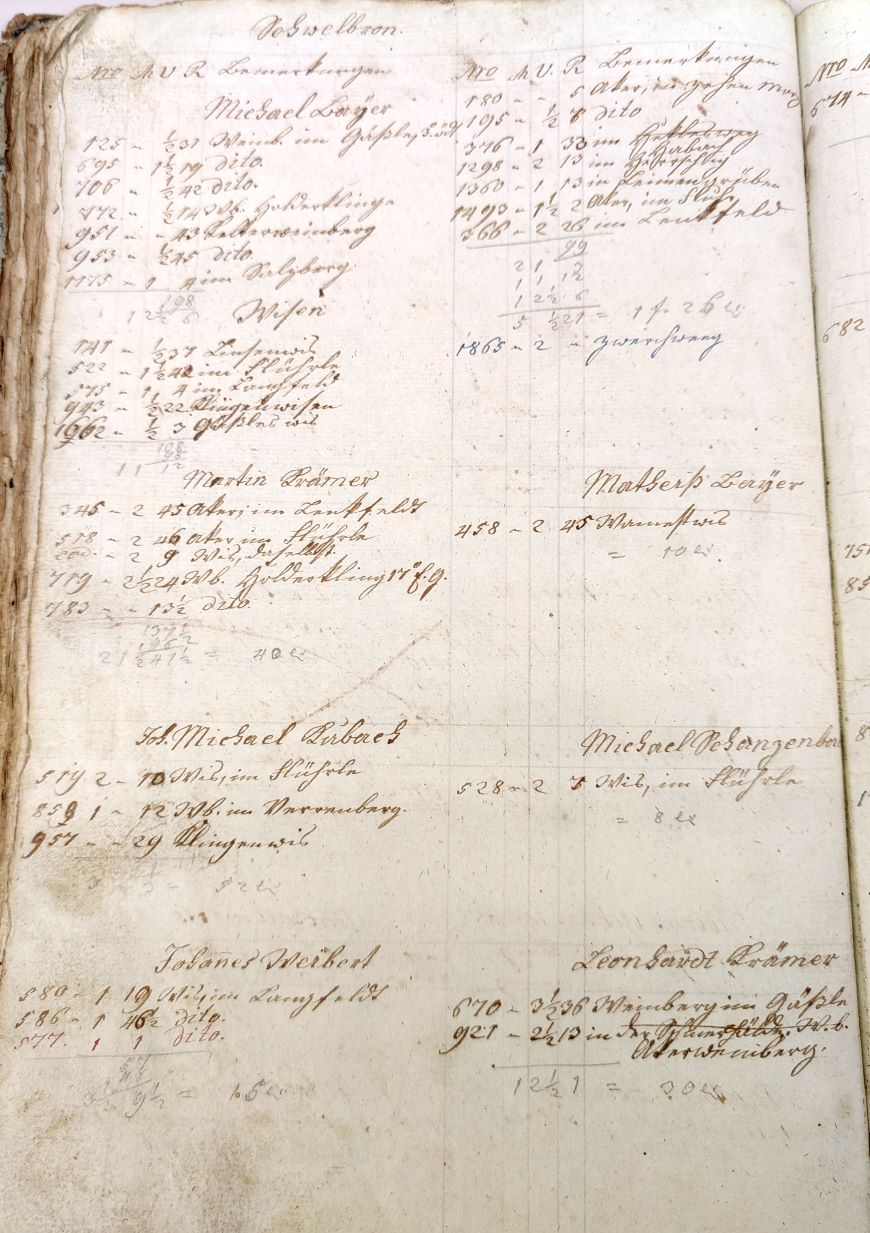 Schwelbron.
Nro M V R Bemerkungen
Michael Bayer
125 - ½ 31 Weinb. im Gäßle, 3. öd
695 - 1½ 19 dito.
706 - ½ 42 dito.
772 - ½ 14 Wb. Holderklinge
951 - - 43 Kelterweinberg
953 - ½ 45 dito
1175 - 1 4 im Salzberg
198
1 2½ 6
Wisen
141 - ½ 37 Linsenwis
522 - 1½ 42 im Flührle
575 - 1 4 im Langfeld
943 - ½ 22 Klingenwisen
1962 - ½ 3 Gäßleswis
1 1 12
Martin Krämer
345 - 2 45 Aker, im Lenkfeldt
518 - 2 46 aker im Flührle
- 2 9 Wis, daselbst.
719 - 2½ 24 Wb. Holderkling
783 - - 13½ dito.
137½
2 1½ 41½ = 40 x
Joh. Michael Kubach
519 2 - 10 Wis, im Flührle
859 1 - 12 Wb. im Verrenberg.
957 - - 29 Klingenwis
= 52 x
Johannes Weibert
580 - 1 19 Wis, im Langfeldt
586 - 1 46½ dito.
577. 1 1 dito.
3½ 9½ = 15 x
Nro M V. R Bemerkungen
180 - - 5 Aker, in zehen Morg
195 - ½ 6 dito
376 - 1 33 im Habach
1298 - 2 13 im
1360 - 1 13 in Leimengrüben
1493 - 1½ 2 Aker, im Fluhr
366 - 2 26 im Lenkfeld
99
2 1 3
1 1 12
1 2½ 6
5 ½ 21 = 1 f. 26 x
1865 - 2 - zwerchweeg
Matheis Bayer
458 - 2 45 Wamestwis
= 10 x
Michael Schanzenba
528 - 2 5 Wis, im Flührle
= 8 x
Leonhardt Krämer
670 - 3½ 36 Weinberg im Gäßle
921 - 2½ 13 in der W.b.
Akerweinberg.
1 2½ 1 = 30 x
Nro
674 -
682
751
85
8